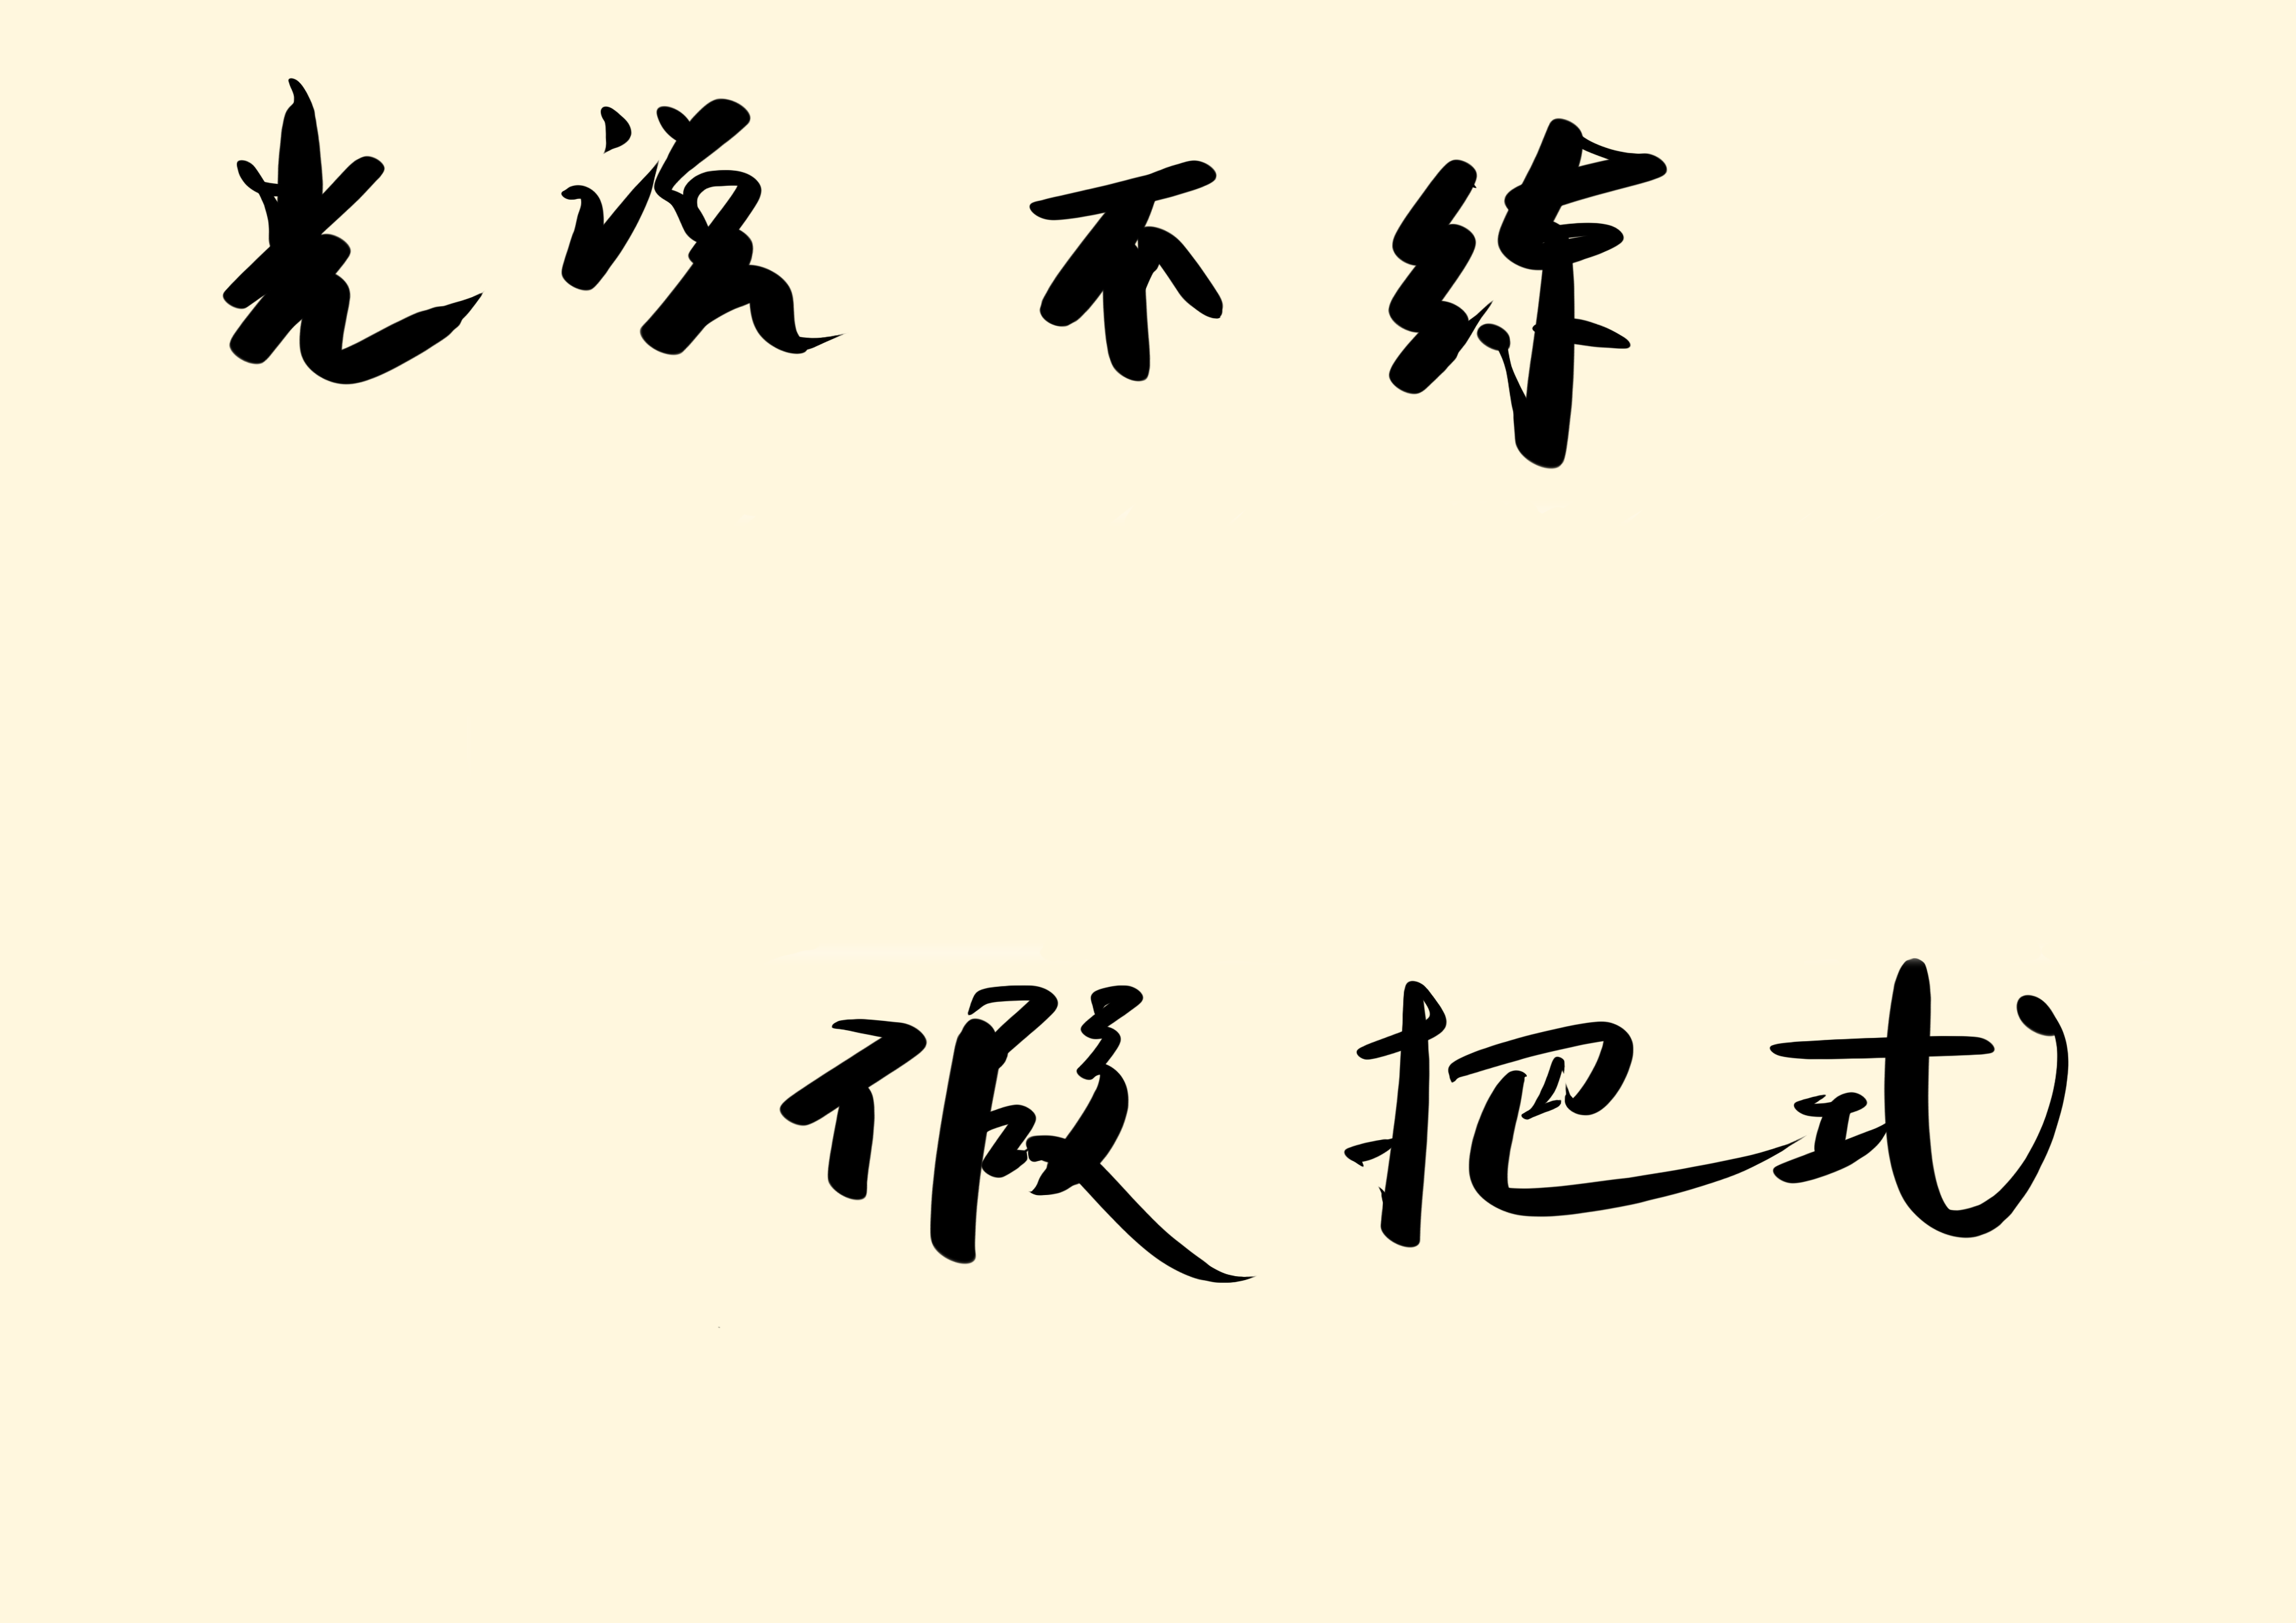 光说不练
假把式